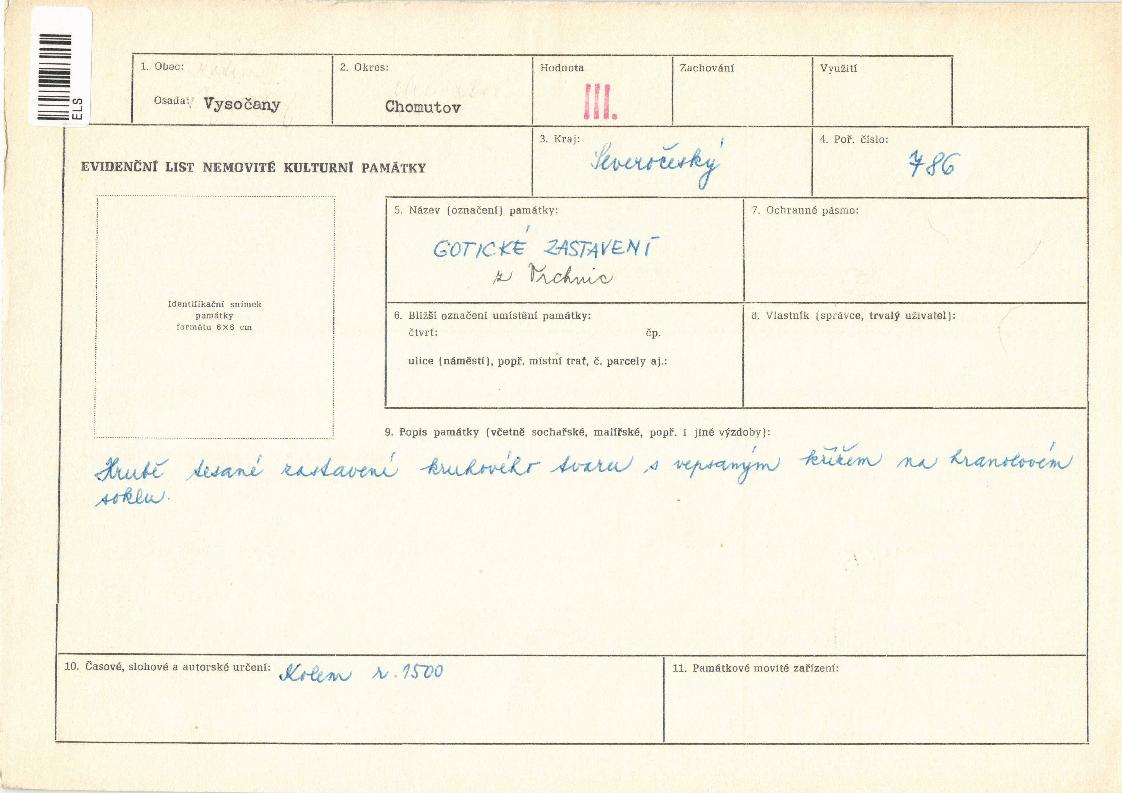 ELS
1. Obec:
Osada: Vysočany
2. Okres:
Chomutov
Hodnota
III.
Zachování
Využití
EVIDENČNÍ LIST NEMOVITÉ KULTURNÍ PAMÁTKY
3. Kraj:
Severočeský
4. Poř. číslo:
786
Identifikační snímek
památky
formátu 6×6 cm
5. Název (označení) památky:
GOTICKÉ ZASTAVENÍ
z Vrchnic
7. Ochranné pásmo:
6. Bližší označení umístění památky:
čtvrť: čp.
ulice (náměstí), popř. místní trať, č. parcely aj.:
8. Vlastník (správce, trvalý uživatel):
9. Popis památky (včetně sochařské, malířské, popř. i jiné výzdoby):
Hrubě tesané zastavení kruhového tvaru s vepsaným křížem na hranolovém
soklu.
10. Časové, slohové a autorské určení: Kolem r. 1500
11. Památkové movité zařízení: